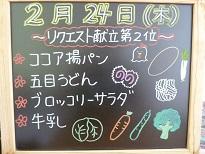 2月24日(木)
~リクエスト献立第2位~
☆ココア揚パン
☆五目うどん
☆ブロッコリーサラダ
☆牛乳